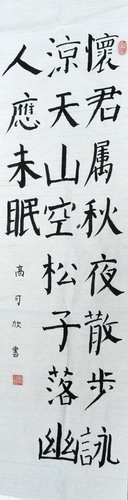 懷君属秋夜散步詠
涼天山空松子落幽
人應未眠
高可欣書